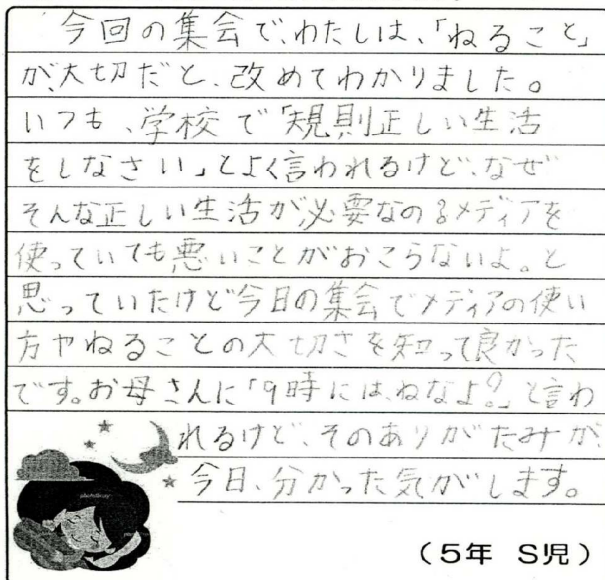 今回の集会で、わたしは、「ねること」
が、大切だと、改めてわかりました。
いつも、学校で「規則正しい生活
をしなさい」とよく言われるけど、なぜ
そんな正しい生活が必要なの?メディアを
使っていても悪いことがおこらないよ。と
思っていたけど今日の集会でメディアの使い
方やねることの大切さを知って良かった
です。お母さんに「9時には、ねなよ?」と言わ
れるけど、そのありがたみが、
今日、分かった気がします。
(5年 S児)